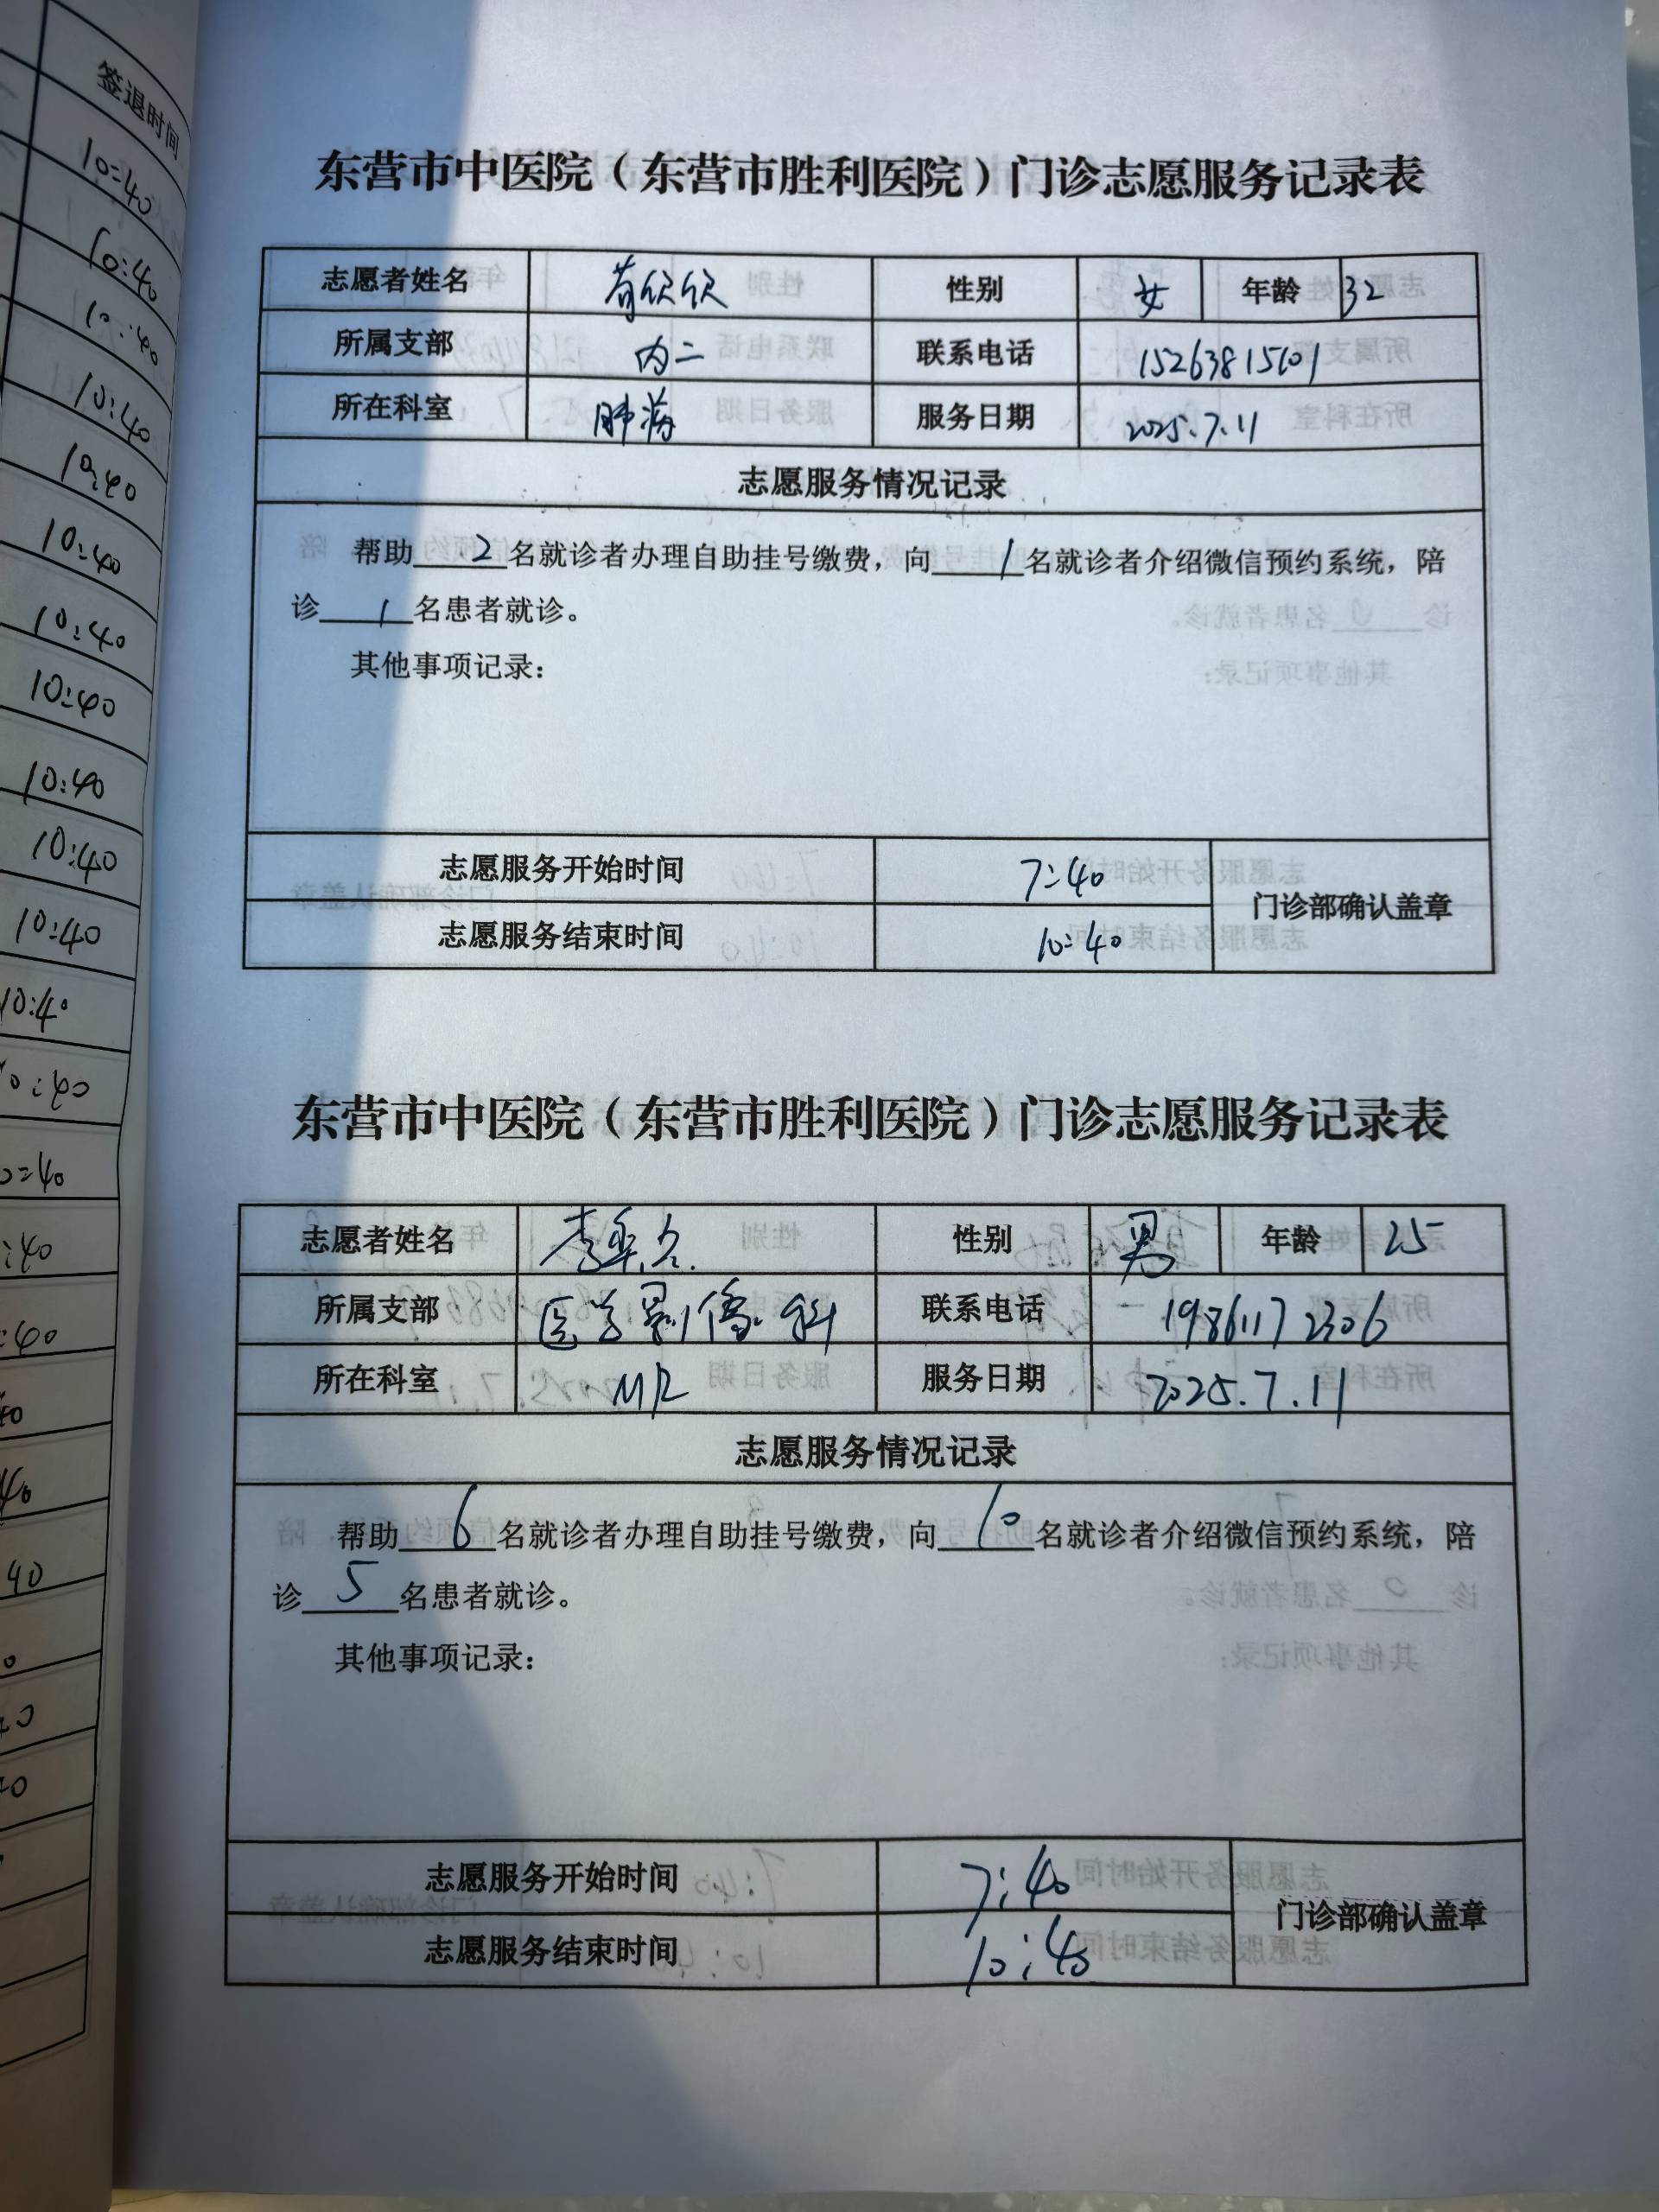 签退时间
10:40
10:40
10:40
10:40
10:40
10:40
10:40
10:40
10:40
10:40
10:40
10:40
东营市中医院（东营市胜利医院）门诊志愿服务记录表
志愿者姓名 苟欣欣 性别 女 年龄 32
所属支部 内二 联系电话
所在科室 肺病 服务日期 2025.7.11
志愿服务情况记录
帮助2名就诊者办理自助挂号缴费，向1名就诊者介绍微信预约系统，陪
诊1名患者就诊。
其他事项记录：
志愿服务开始时间 7:40
门诊部确认盖章
志愿服务结束时间 10:40
东营市中医院（东营市胜利医院）门诊志愿服务记录表
志愿者姓名 性别 男 年龄 25
所属支部 医学影像科 联系电话 19861172306
所在科室 MR 服务日期 2025.7.11
志愿服务情况记录
帮助6名就诊者办理自助挂号缴费，向10名就诊者介绍微信预约系统，陪
诊5名患者就诊。
其他事项记录：
志愿服务开始时间 7:40
门诊部确认盖章
志愿服务结束时间 10:40